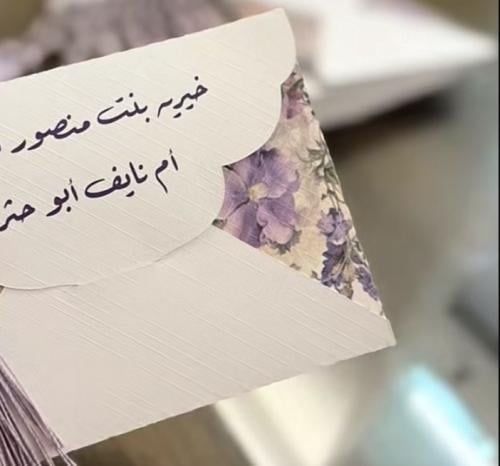 خيريه بنت منصور
أم نايف أبو